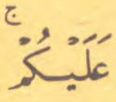 ج
عَلَيْكُمْ